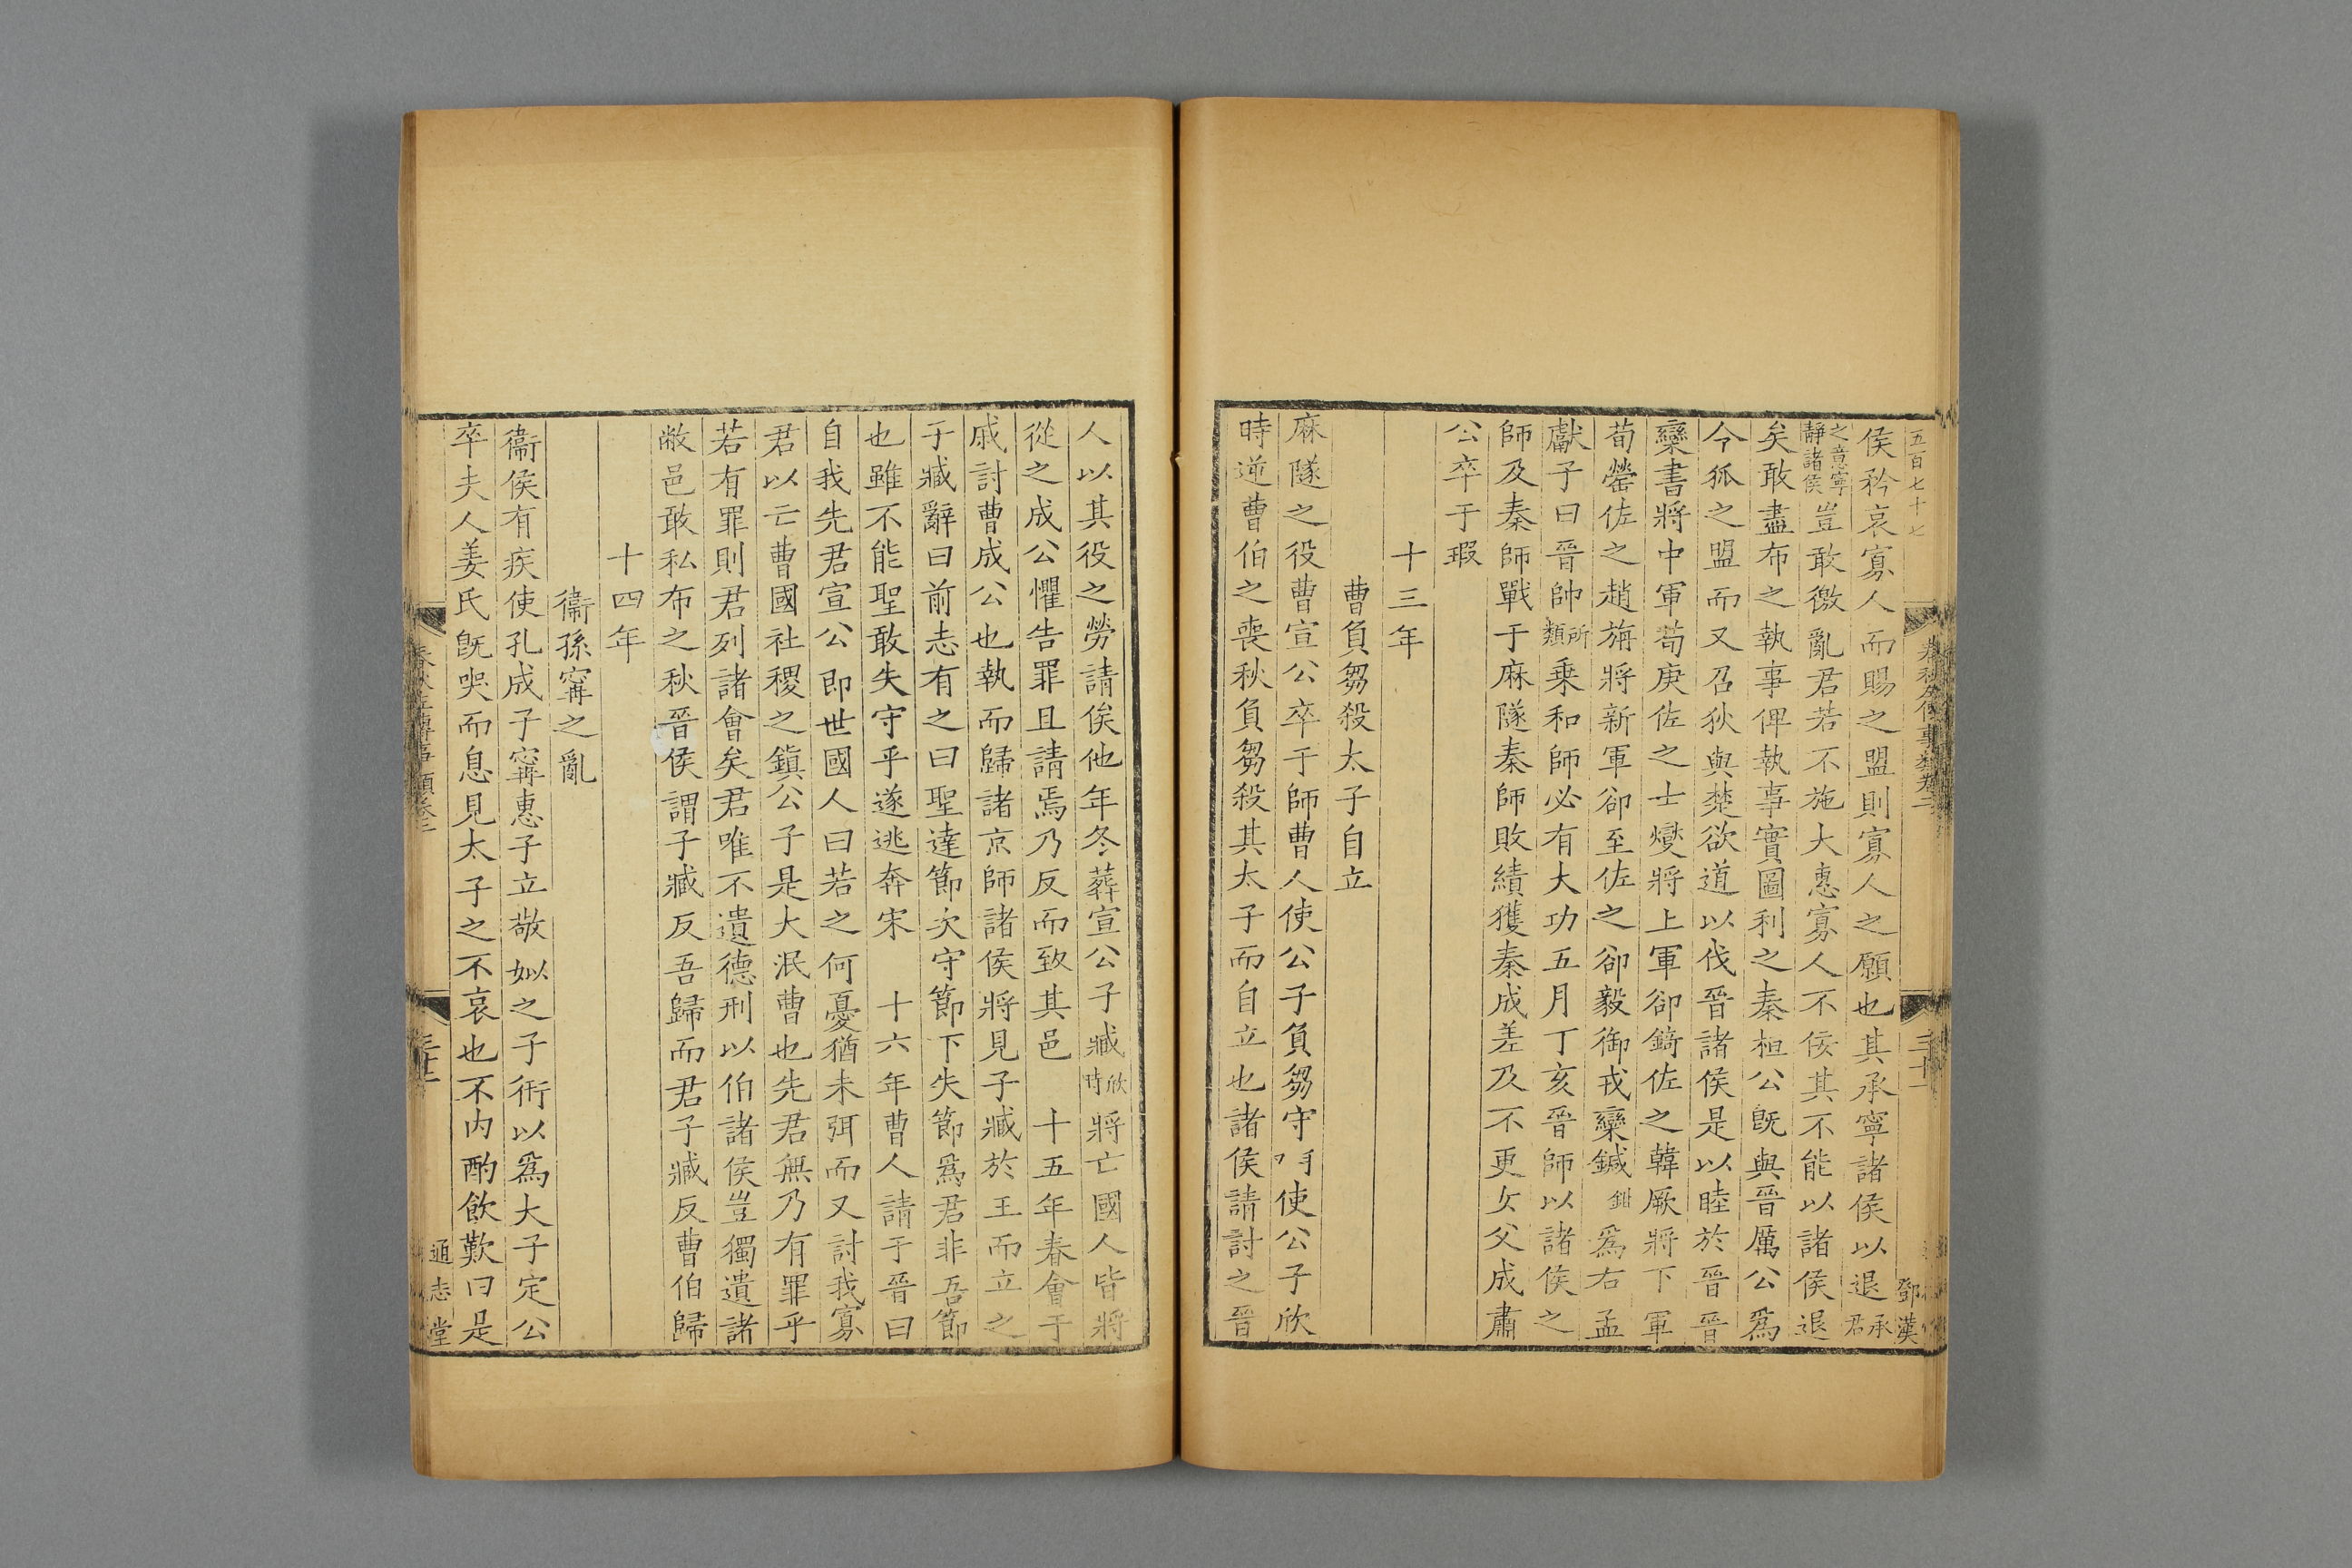 五百七十七
侯矜哀寡人而賜之盟則寡人之願也其承寧諸侯以退承君
之意寧靜諸侯豈敢徼亂君若不施大惠寡人不佞其不能以諸侯退
矣敢盡布之執事俾執事實圖利之秦桓公旣與晉厲公爲
令狐之盟而又召狄與楚欲道以伐晉諸侯是以睦於晉晉
欒書將中軍荀庚佐之士燮將上軍郤錡佐之韓厥將下軍
荀罃佐之趙旃將新軍郤至佐之郤毅御戎欒鍼鉗爲右孟
獻子曰晉帥所類乗和師必有大功五月丁亥晉師以諸侯之
師及秦師戰于麻隧秦師敗績獲秦成差及不更女父成肅
公卒于瑕
十三年
曹負芻殺太子自立
麻隧之役曹宣公卒于師曹人使公子負芻守使公子欣
時逆曹伯之喪秋負芻殺其太子而自立也諸侯請討之晉
鄧漢
人以其役之勞請俟他年冬葬宣公子臧欣時將亡國人皆將
從之成公懼告罪且請焉乃反而致其邑 十五年春會于
戚討曹成公也執而歸諸京師諸侯將見子臧於王而立之
子臧辭曰前志有之曰聖達節次守節下失節爲君非吾節
也雖不能聖敢失守乎遂逃奔宋 十六年曹人請于晉曰
自我先君宣公卽世國人曰若之何憂猶未弭而又討我寡
君以亡曹國社稷之鎭公子是大泯曹也先君無乃有罪乎
若有罪則君列諸會矣君唯不遺德刑以伯諸侯豈獨遺諸
敝邑敢私布之秋晉侯謂子臧反吾歸而君子臧反曹伯歸
十四年
衞孫甯之亂
衞侯有疾使孔成子甯惠子立敬姒之子衎以爲大子定公
卒夫人姜氏旣哭而息見太子之不哀也不内酌飲歎曰是
通志堂